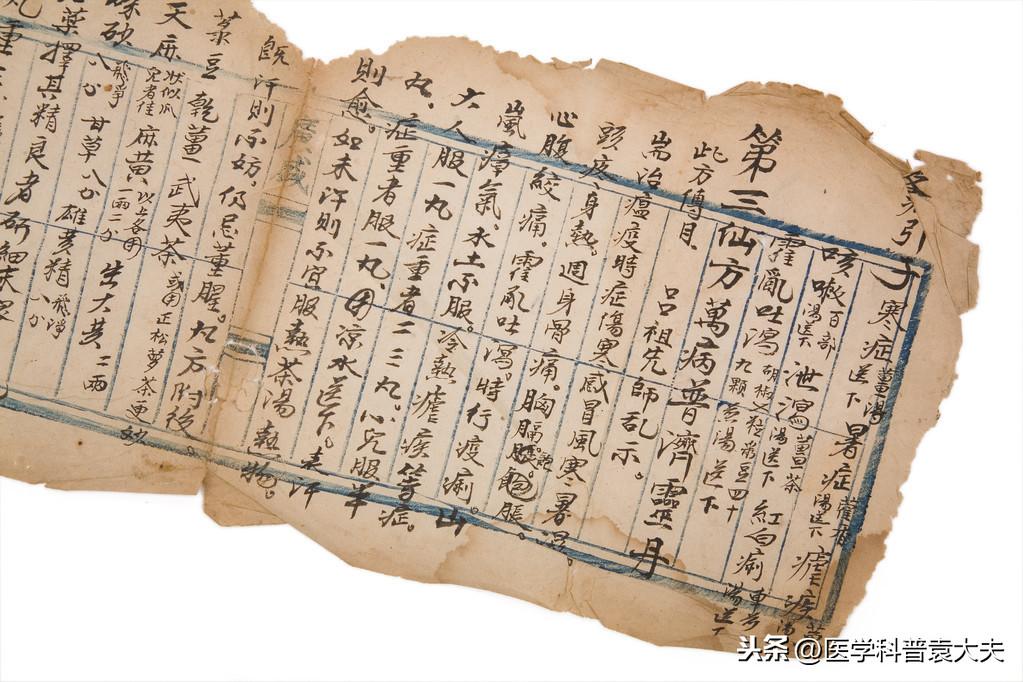 引子 寒症薑湯送下 暑症藿香湯送下 瘧疾
咳嗽百部湯送下 泄瀉薑茶湯送下
霍亂吐瀉胡椒粒菉豆四十九顆煎湯送下 紅白痢車前湯送下
第三仙方萬病普濟靈丹
此方傳自 呂祖先師乩示。
耑治瘟疫時症傷寒感冒風寒暑濕
頭疼、身熱。週身骨痛。胸膈飽脹。
心腹絞痛。霍乱吐瀉。時行疫痢。山
嵐瘴氣。水土不服。冷熱瘧疾等症。
大人服一丸症重者二三丸。小兒服半
丸、症重者服一丸、用凉水送下。表汗
則愈。如未汗則不宜服熱茶湯熱物。
既汗則不妨,仍忌葷腥。丸方附後
菉豆 乾薑 武夷茶或用正松蘿茶更妙
天麻狀似瓜兒者佳 麻黃、以上各用一両二分 生大黄二両
硃砂飛净八分 甘草八分 雄黄精飛净八分
藥擇其精良者研細末
丸重
头条 @医学科普袁大夫